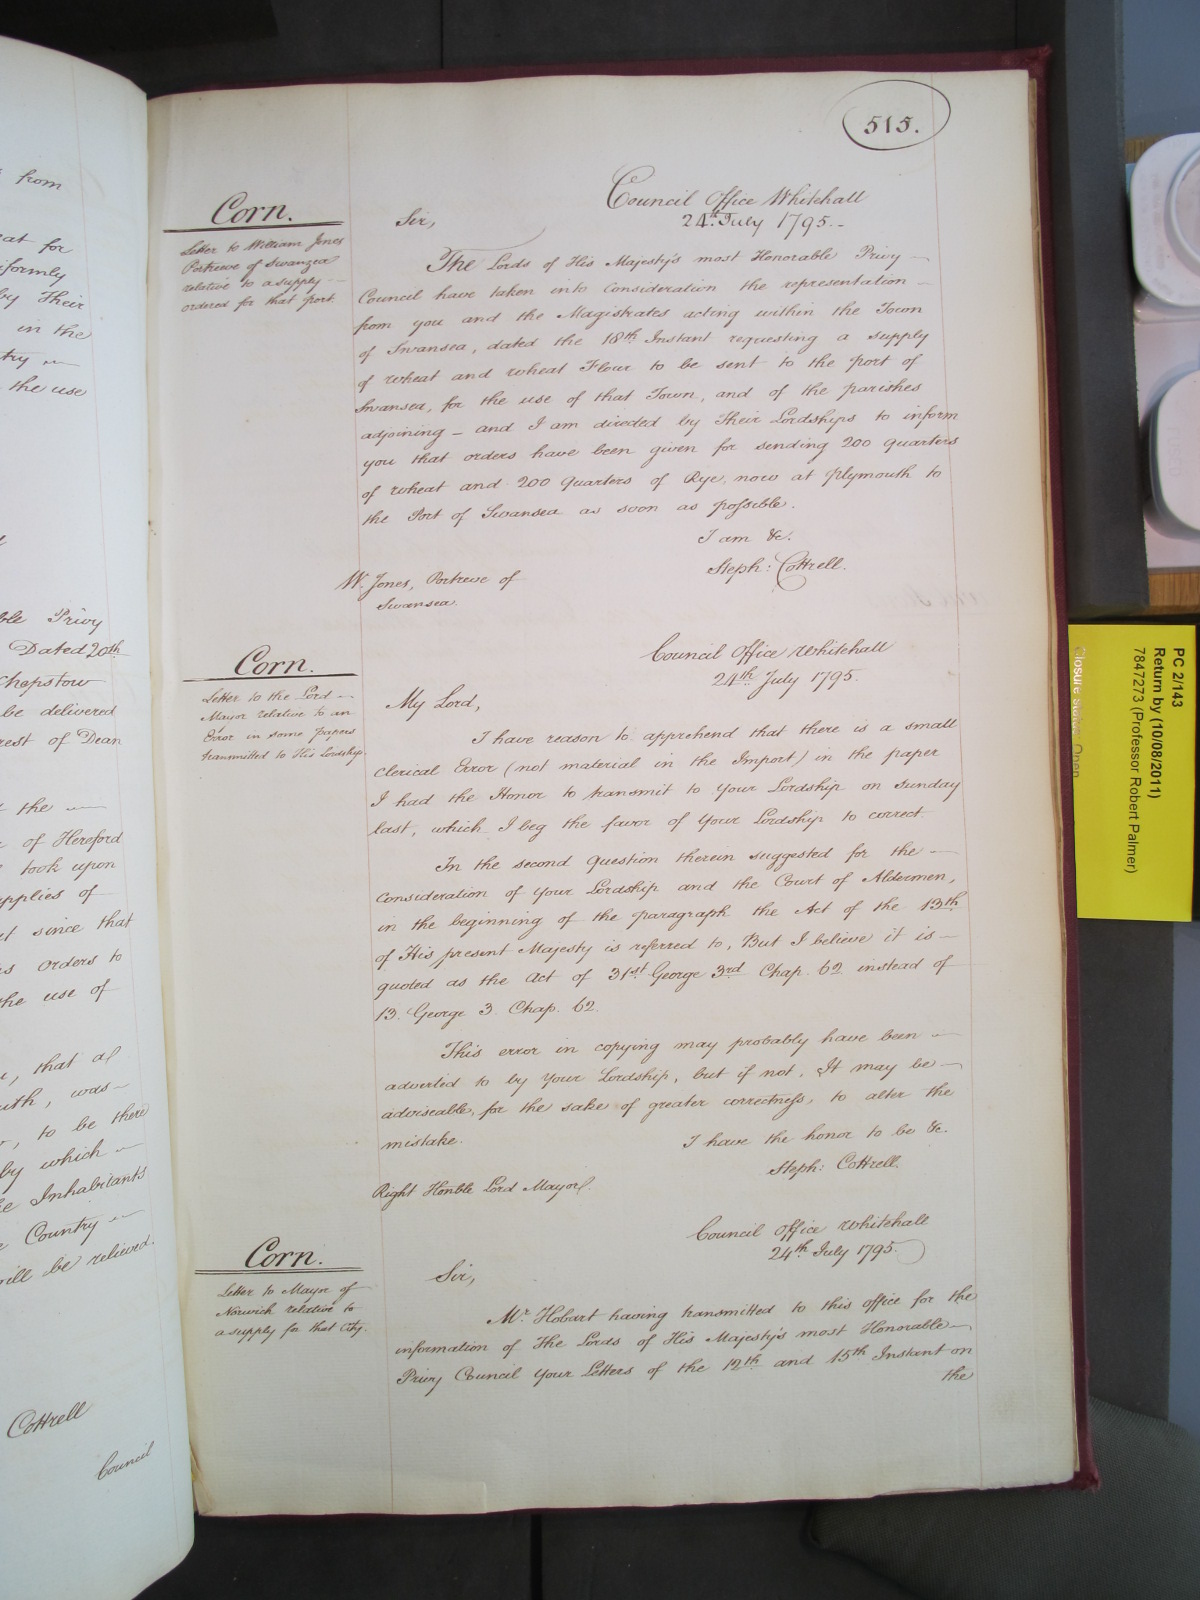 from
at for
iformly
by Their
in the
try
the use
ble Privy
Dated 20th
Chepstow
be delivered
rest of Dean
the
of Hereford
took upon
upplies of
t since that
is orders to
the use of
that al
uth, was
to be there
by which
e Inhabitants
Country
will be relieved.
Cottrell
Council
515.
Corn.
Letter to William Jones
Portreeve of Swanzea
relative to a supply
ordered for that port
Council Office Whitehall
24th July 1795.
Sir,
The Lords of His Majesty's most Honorable Privy
Council have taken into Consideration the representation
from you and the Magistrates acting within the Town
of Swansea, dated the 18th Instant requesting a supply
of wheat and wheat Flour to be sent to the port of
Swansea, for the use of that Town, and of the parishes
adjoining – and I am directed by Their Lordships to inform
you that orders have been given for sending 200 quarters
of wheat and 200 Quarters of Rye, now at Plymouth to
the Port of Swansea as soon as possible.
I am &c.
Steph: Cottrell.
W. Jones, Portreve of
Swansea.
Corn.
Letter to the Lord
Mayor relative to an
Error in some papers
transmitted to His Lordship
Council Office Whitehall
24th July 1795.
My Lord,
I have reason to apprehend that there is a small
Clerical Error (not material in the Import) in the paper
I had the Honor to transmit to Your Lordship on Sunday
last, which I beg the favor of Your Lordship to correct
In the second Question therein suggested for the
Consideration of Your Lordship and the Court of Aldermen,
in the beginning of the paragraph the Act of the 13th
of His present Majesty is referred to, But I believe it is
quoted as the Act of 31st George 3rd Chap. 62 instead of
13. George 3 Chap. 62.
This error in copying may probably have been
adverted to by Your Lordship, but if not, It may be
adviseable, for the sake of greater correctness, to alter the
mistake.
I have the honor to be &c.
Steph: Cottrell.
Right Honble Lord Mayor
Corn.
Letter to Mayor of
Norwich relative to
a supply for that City.
Council Office Whitehall
24th July 1795.
Sir,
Mr Hobart having transmitted to this office for the
information of The Lords of His Majesty's most Honorable
Privy Council Your Letters of the 12th and 15th Instant on
the
PC 2/143
Return by (10/08/2011)
7847273 (Professor Robert Palmer)
Closure Status: Open